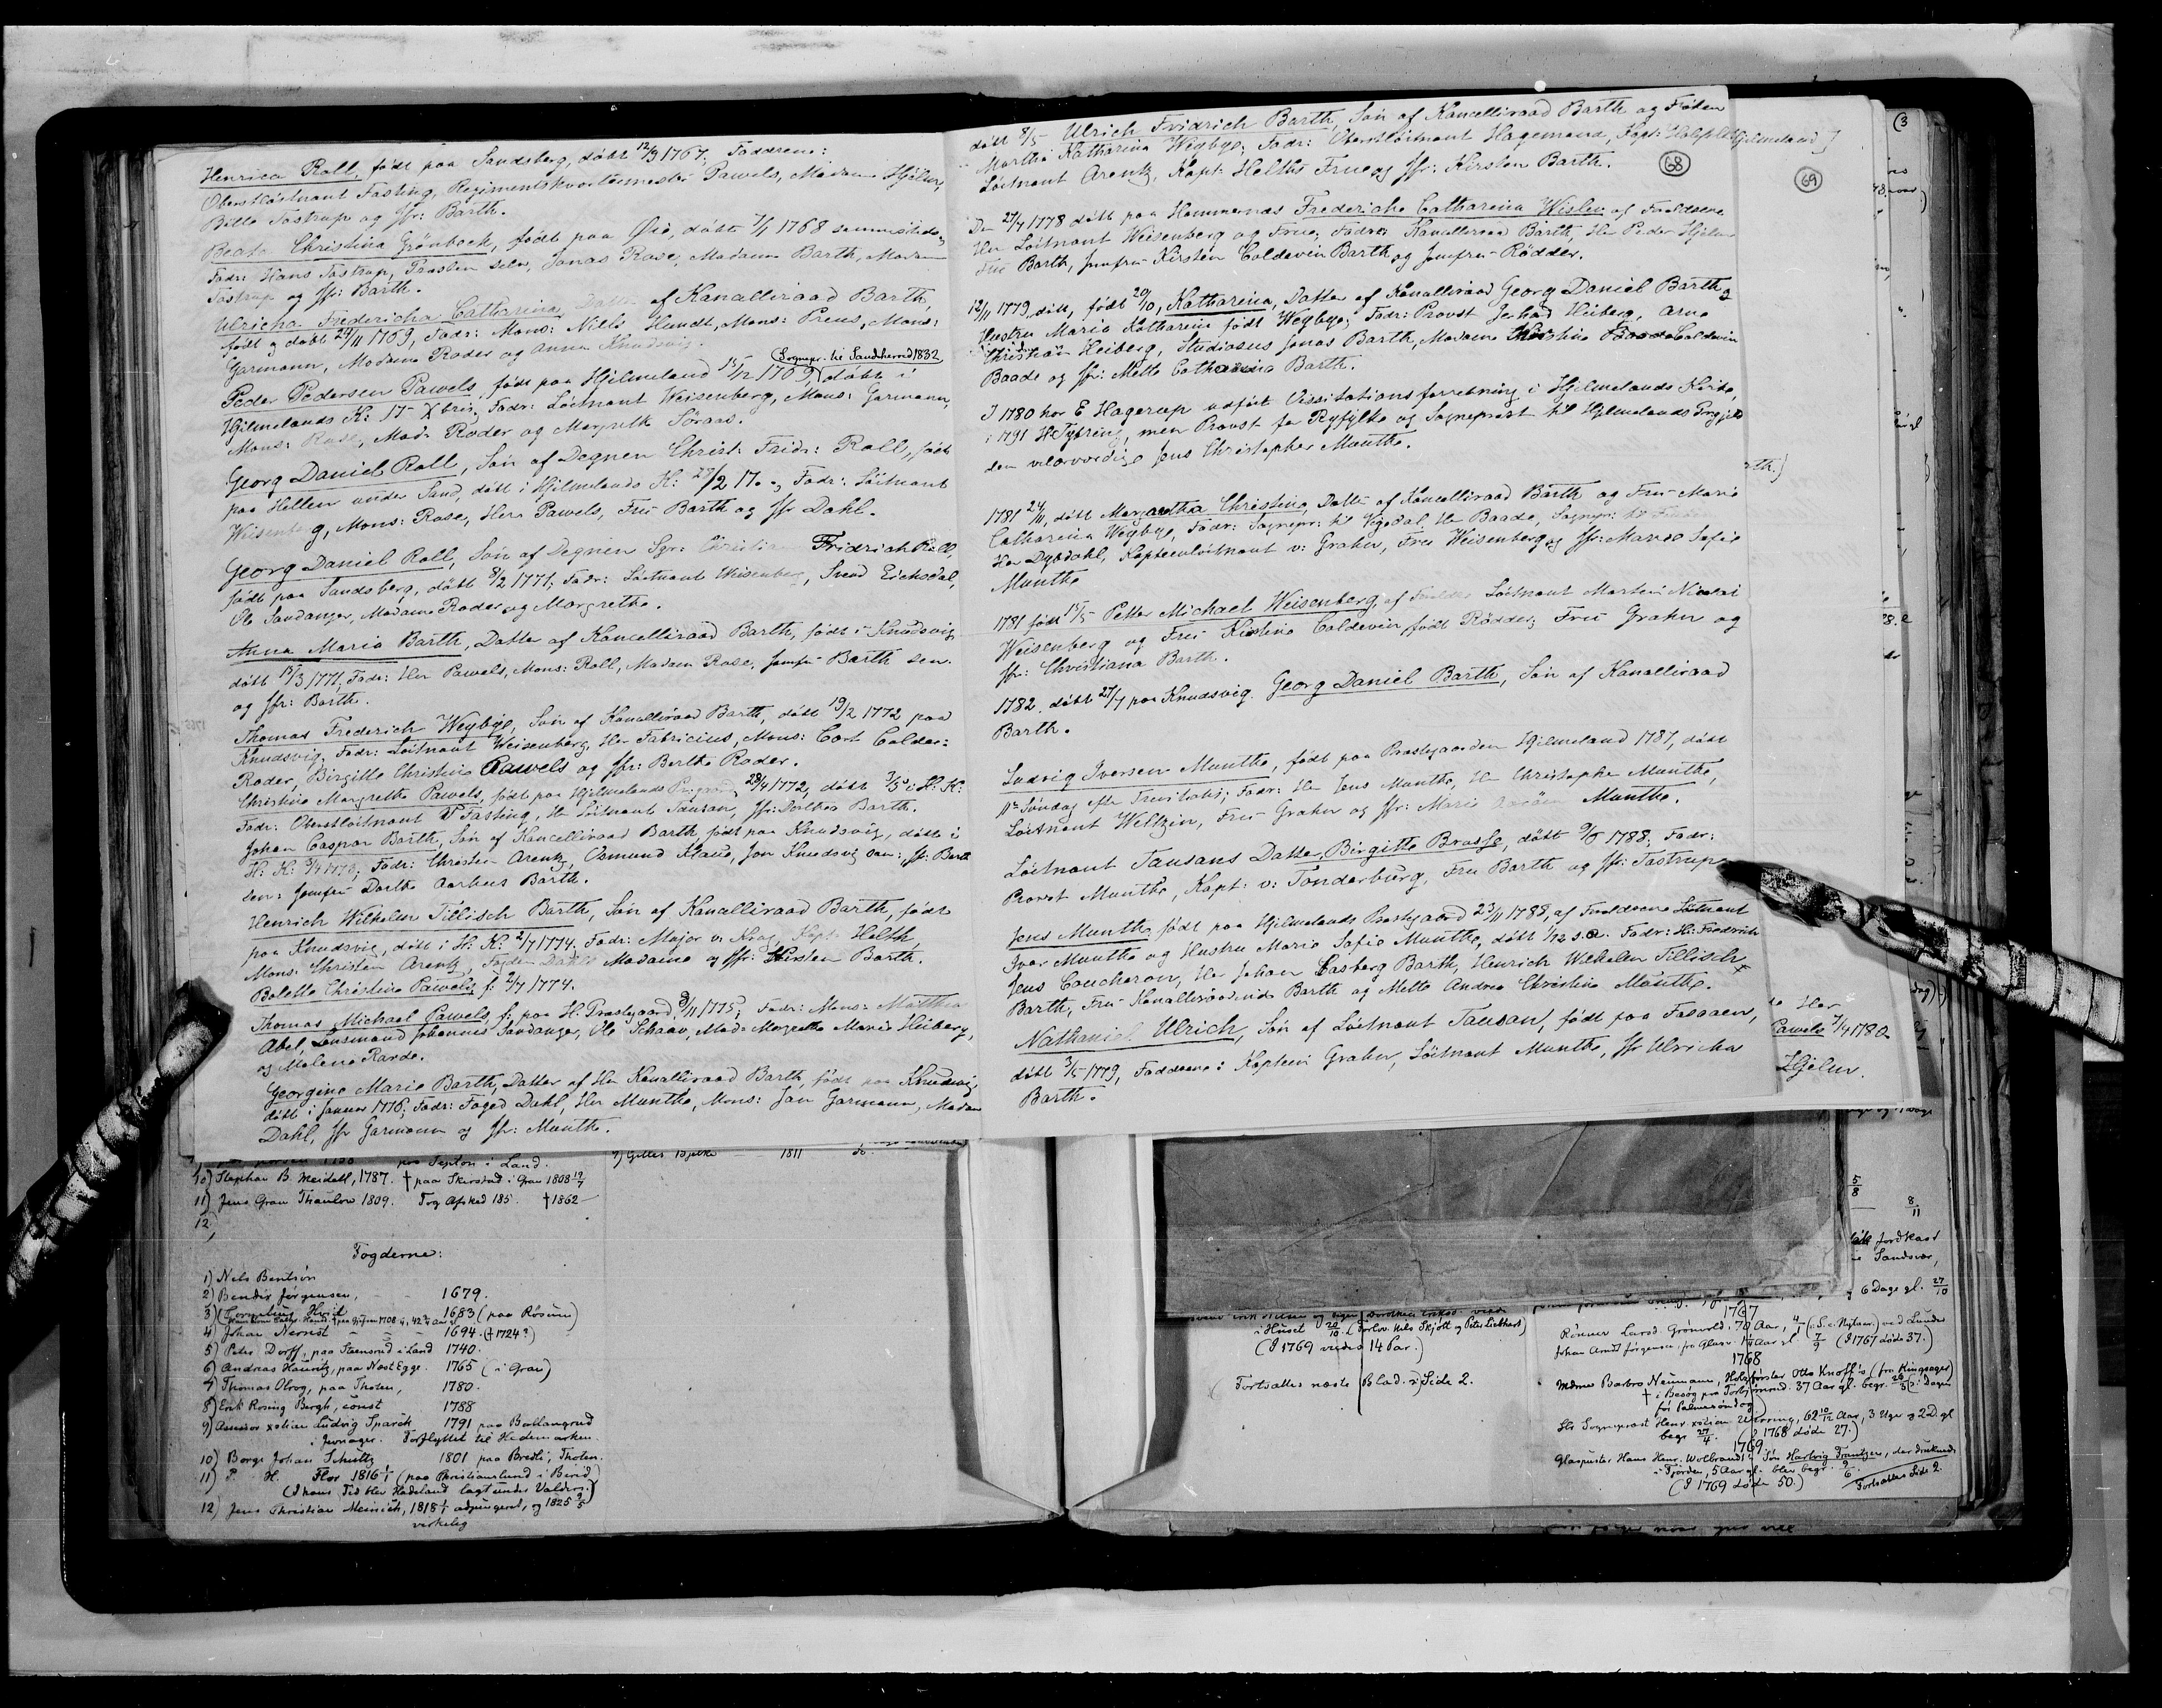 Henrica Roll, født paa Sandsberg, døbt 12/3 1767; Faddrene:
Oberstløitnant Fasting, Regimentskvartermester Pawels, Madame Hjelm,
Bitte Tastrup og Jfr: Barth.
Beata Christina Grønbech, født paa Øiø, døbt 7/1 1768 sammesteds,
Fadr: Hans Tastrup, Præsten selv, Jonas Rose, Madame Barth, Madam
Tastrup og Jfr: Barth.
Ulricha Fredericha Catharina, Datter af Kancelliraad Barth,
født og døbt 24/11 1769, Fadr: Mons: Niels Hundt, Mons: Preus, Mons:
Garmann, Madame Rodes og Anna Knudsvig.
(Sognepr. til Sandsherred 1832
Peder Pedersen Pawels, født paa Hjelmeland 15/12 1769, døbt i
Hjelmelands K: 17 Xbris, Fadr: Løitnant Weisenberg, Mons: Garmann,
Mons: Rose, Mad: Roder og Margrethe Søraas.
Georg Daniel Roll, Søn af Degnen Christ: Fridr: Roll, født
paa Hellen under Sand, døbt i Hjelmelands K: 27/2 17.., Fadr: Løitnant
Weisenberg, Mons: Rose, Herr Pawels, Fru Barth og Jfr Dahl.
Georg Daniel Roll, Søn af Degnen Sgr: Christian Fridrich Roll,
født paa Sandsberg, døbt 8/2 1771; Fadr: Løitnant Weisenberg, Svend Eichsdal,
Ole Sandanger, Madame Roder og Margrethe.
Anna Maria Barth, Datter af Kancelliraad Barth, født i Knudsvig
døbt 13/3 1771, Fadr: Her Pawels, Mons: Roll, Madam Rose, Jomfru Barth sen.
og Jfr: Barth.
Thomas Frederich Wegbye, Søn af Kancelliraad Barth, døbt 19/2 1772 paa
Knudsvig, Fadr: Løitnant Weisenberg, Her Fabricius, Mons: Cort Colder:
Roder, Birgitte Christine Pawels og Jfr: Berthe Roder.
Christine Margrethe Pawels, født paa Hjelmelands 28/4 1772, døbt 3/5 i H: K:
Fadr: Oberstløitnant Fasting, Hr Løitnant Tausan, Jfr: Dorthea Barth.
Johan Caspar Barth, Søn af Kancelliraad Barth født paa Knudsvig, døbt i
H: K: 3/4 1773; Fadr: Christen Arentz, Osmund Klaue, Jon Knudsvig, Jfr: Barth
sen: Jomfru Dorthe Aarhus Barth.
Henrich Wilhelm Tillisch Barth, Søn af Kancelliraad Barth, født
paa Knudsvig, døbt i H: K: 2/7 1774. Fadr: Major v: Krag, Kapt: Holth,
Mons: Christen Arentz, Fogden Dahls Madame og Jfr: Kirsten Barth.
Bolette Christine Pawels f: 2/7 1774.
Thomas Michael Pawels f: paa H: Præstegaard, 3/11 1775; Fadr: Mons: Matthia
Abel, Lensmand Johannes Sandanger, Ole Schaav, Mad: Margrethe Marie Heiberg,
og Malene Rarde.
Georgine Marie Barth, Datter af Her Kancelliraad Barth, født paa Knudsvig,
døbt i Januar 1776, Fadr: Foged Dahl, Her Munthe, Mons: Jan Garmann, Madam
Dahl, Jfr Garmann og Jfr: Munthe.
døbt 8/5 Ulrich Fridrich Barth, Søn af Kancelliraad Barth og Frøken
Martha Katharina Wegbye; Fadr: Oberstløitnant Hagemand,
Løitnant Arentz, Kapt: Holths Frue og Jfr: Kirsten Barth.
Hjelmeland]
(68)
(69)
(3
Den 27/7 1778 døbt paa Hammernæs Fredericha Catharina Wisleu af Forældrene
Her Løitnant Weisenberg og Frue; Fadr: Kancelliraad Barth, Her Peder Hjelm
Fru Barth, Jomfru Kirsten Coldevin Barth og Jomfru Rødder.
12/11 1779 døbt, født 20/10, Katharina, Datter af Kancelliraad Georg Daniel Barth og
Hustru Maria Katharina født Wegbye; Fadr: Provst Gerhard Heiberg, Arne
Christian Heiberg, Studiosus Jonas Barth, Madame Kirstine Coldevin
Baade og Jfr: Mette Catharina Barth.
I 1780 har E Hagerup udført Visitatsforretning i Hjelmelands Kirke,
i 1791 H. Tybring, men Provst for Ryfylke og Sogneprest til Hjelmelands Prgjeld
den velærværdige Jens Christopher Munthe.
rth.]
1781 24/11, døbt Margaretha Christina, Datter af Kancelliraad Barth og Fru Maria
Catharina Wegbye, Fadr: Sognepr: til Vigedal Hr Baade, Sognepr: til
Her Dybdahl, Kapteinløitnant v: Graher, Fru Weisenberg og Jfr: Maren Sofie
Munthe
1781 født 15/5 Petter Michael Weisenberg, af Løitnant Morten Nicolai
Weisenberg og Fru Kirstine Coldevin født Rødder; Fru Graher og
Jfr: Christiana Barth.
1782. døbt 27/7 paa Knudsvig. Georg Daniel Barth, Søn af Kancelliraad
Barth.
Ludvig Iversen Munthe, født paa Præstegaarden Hjelmeland 1787, døbt
11te Søndag efter Trinitatis; Fadr: Her Jens Munthe, Her Christopher Munthe,
Løitnant Weltzin, Fru Graher og Jfr: Marie Munthe.
Løitnant Tausans Datter, Birgitte Brusse, døbt 9/5 1788; Fadr:
Provst Munthe, Kapt: v: Tonderburg, Fru Barth og Jfr: Tastrup.
Jens Munthe, født paa Hjelmelands Præstegaard 23/11 1788, af Forældrene Løitnant
Iver Munthe og Hustru Marie Sofie Munthe, døbt 1/12 s.a. Fadr: Hr. Fredrich
Jens Coucheron, Her Johan Casberg Barth, Henrich Wilhelm Tillisch
Barth, Fru Kancelliraadinde Barth og Mette Andrea Christine Munthe.
Nathaniel Ulrich, Søn af Løitnant Tausan, født paa Fasaaen,
døbt 3/5 1779, Faddrene: Kaptein Graher, Løitnant Munthe, Jfr Ulricha
Barth.
Her
Pawels 7/4 1780
Hjelm.
paa Tepton i Land.
10) Stephan B. Meidell, 1787. † paa Skirstad i Gran 1808 19/7
11) Jens Gran Thaulow 1809. Tog Afsked 185. †1862
12)
7) Gilles 1811 do.
Fogderne:
1) Nels Bentsøn
2) Bendix Jørgensen, 1679.
3) Cornelius Hvid 1683 (paa Røsum)
4) Johan Nernst - - - 1694. († 1724?)
5) Peter Dorff, paa Steensrud i Land 1740.
6) Andreas Hauritz, paa Næst Egge. 1765 (i Gran)
7) Thomas Olrog, paa Thoten, 1780.
8) Erik Rosing Bergh, const 1788
9) Assessor xstian Ludvig Sparch 1791 paa Ballangrud
i Jevnager. Forflyttet til Hedemarken.
10) Borge Johan Schultz 1801 paa Bredli, Thoten.
11) P. H. Flor 1816 1/1 (paa Christianslund i Birid)
(I hans Tid blev Hadeland lagt under Valders.)
12) Jens Christian Meinich, 1818 1/1 adjungeret, og 1825 9/5
virkelig
i Huset 20/10. (Forlov: Nels Skjøtt og Peter Liebhart)
(I 1769 viedes 14 Par.)
(Fortsættes næste Blad. i Side 2.
1767
Rønner Larsd. Grønvold, 70 Aar, 4/1 (L. c. Nytaar) ved Lunder
Johan Arndt Jørgensen, fra Glasv. 1 1/4 Aar gl 7/9 (I 1767 døde 37.)
1768
Mdme Barbro Neumann, Holzførster Otto Knoff's (fra Kingsager)
† i Besøg paa Torbjørnrud. 37 Aar gl. begr. 26/3 (i Dagen
før Palmesøndag)
Hr Sognepræst Henr. xstian Wirring, 62 10/12 Aar, 3 Uger og 2 D. gl
begr 27/4. (I 1768 døde 27.)
1769
Glaspuster Hans Henr. Wolbrandt's Søn Hartvig Frantzen, der druknede
i Fjorden, 5 Aar gl. blev begr. 9/6
(I 1769 døde 50.)
Fortsættes Side 2.
5/8
8/11
jordkast
Sandsvær,
og 6 Dage gl. 27/10